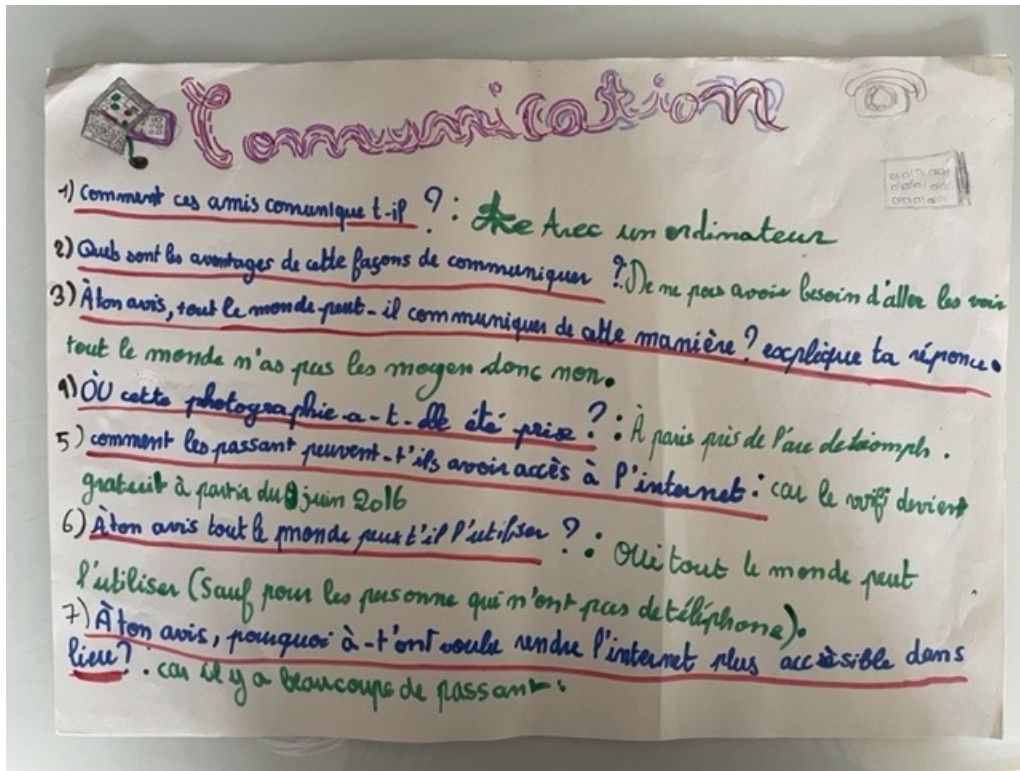 Comunication
1) Comment ces amis comunique t-il ? : Avec un ordinateur
2) Quels sont les avantages de cette façons de communiquer ? De ne pas avoir besoin d'aller les voir
3) À ton avis, tout le monde peut-il communiquer de cette manière ? explique ta réponce.
tout le monde n'as pas les moyen donc non.
4) OÙ cette photographie-a-t-elle été prise ? : À paris près de l'arc de triomph.
5) comment les passant peuvent-t'ils avoir accès à l'internet : car le wifi devient
gratuit à partir du juin 2016
6) À ton avis tout le monde peut t'il l'utiliser ? : Oui tout le monde peut
l'utiliser (Sauf pour les personne qui n'ont pas de téléphone).
7) À ton avis, pourquoi à-t'ont voulu rendre l'internet plus accèsible dans
lieu ? : car il y a beaucoupe de passant.